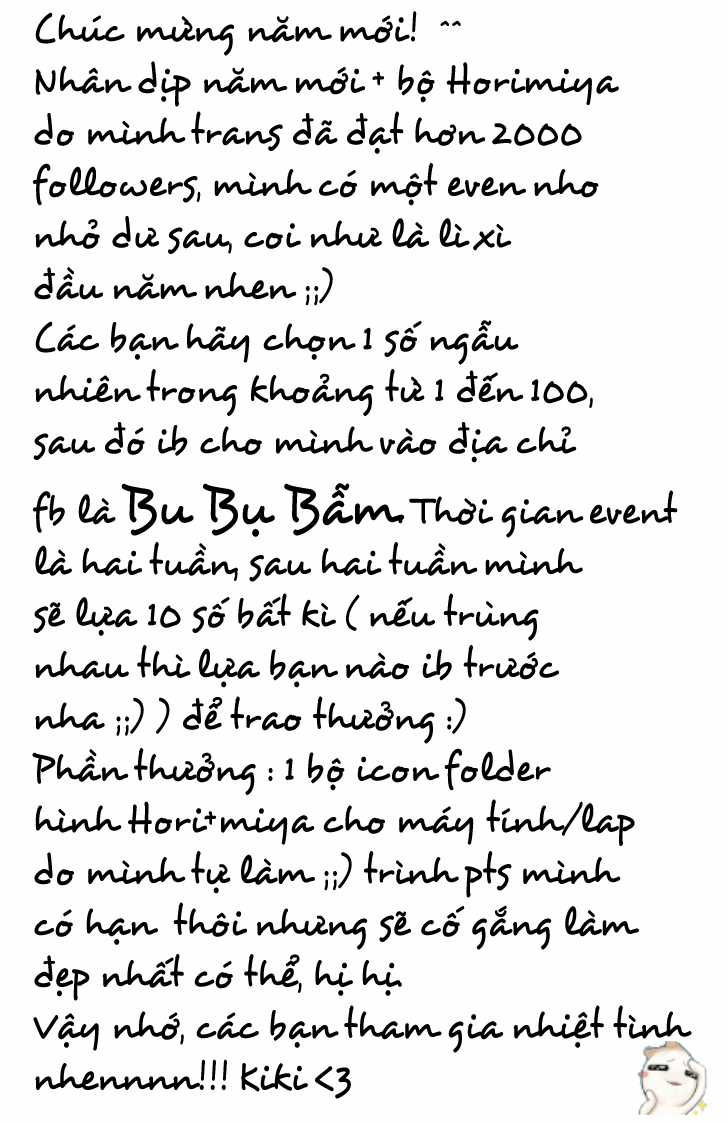 Chúc mừng năm mới! ^^
Nhân dịp năm mới + bộ Horimiya
do mình trans đã đạt hơn 2000
followers, mình có một even nho
nhỏ dư sau, coi như là lì xì
đầu năm nhen ;;)
Các bạn hãy chọn 1 số ngẫu
nhiên trong khoảng từ 1 đến 100,
sau đó ib cho mình vào địa chỉ
fb là Bu Bụ Bẫm. Thời gian event
là hai tuần, sau hai tuần mình
sẽ lựa 10 số bất kì ( nếu trùng
nhau thì lựa bạn nào ib trước
nha ;;) ) để trao thưởng :)
Phần thưởng : 1 bộ icon folder
hình Hori+miya cho máy tính/lap
do mình tự làm ;;) trình pts mình
có hạn thôi nhưng sẽ cố gắng làm
đẹp nhất có thể, hị hị.
Vậy nhớ, các bạn tham gia nhiệt tình
nhennnn!!! Kiki <3